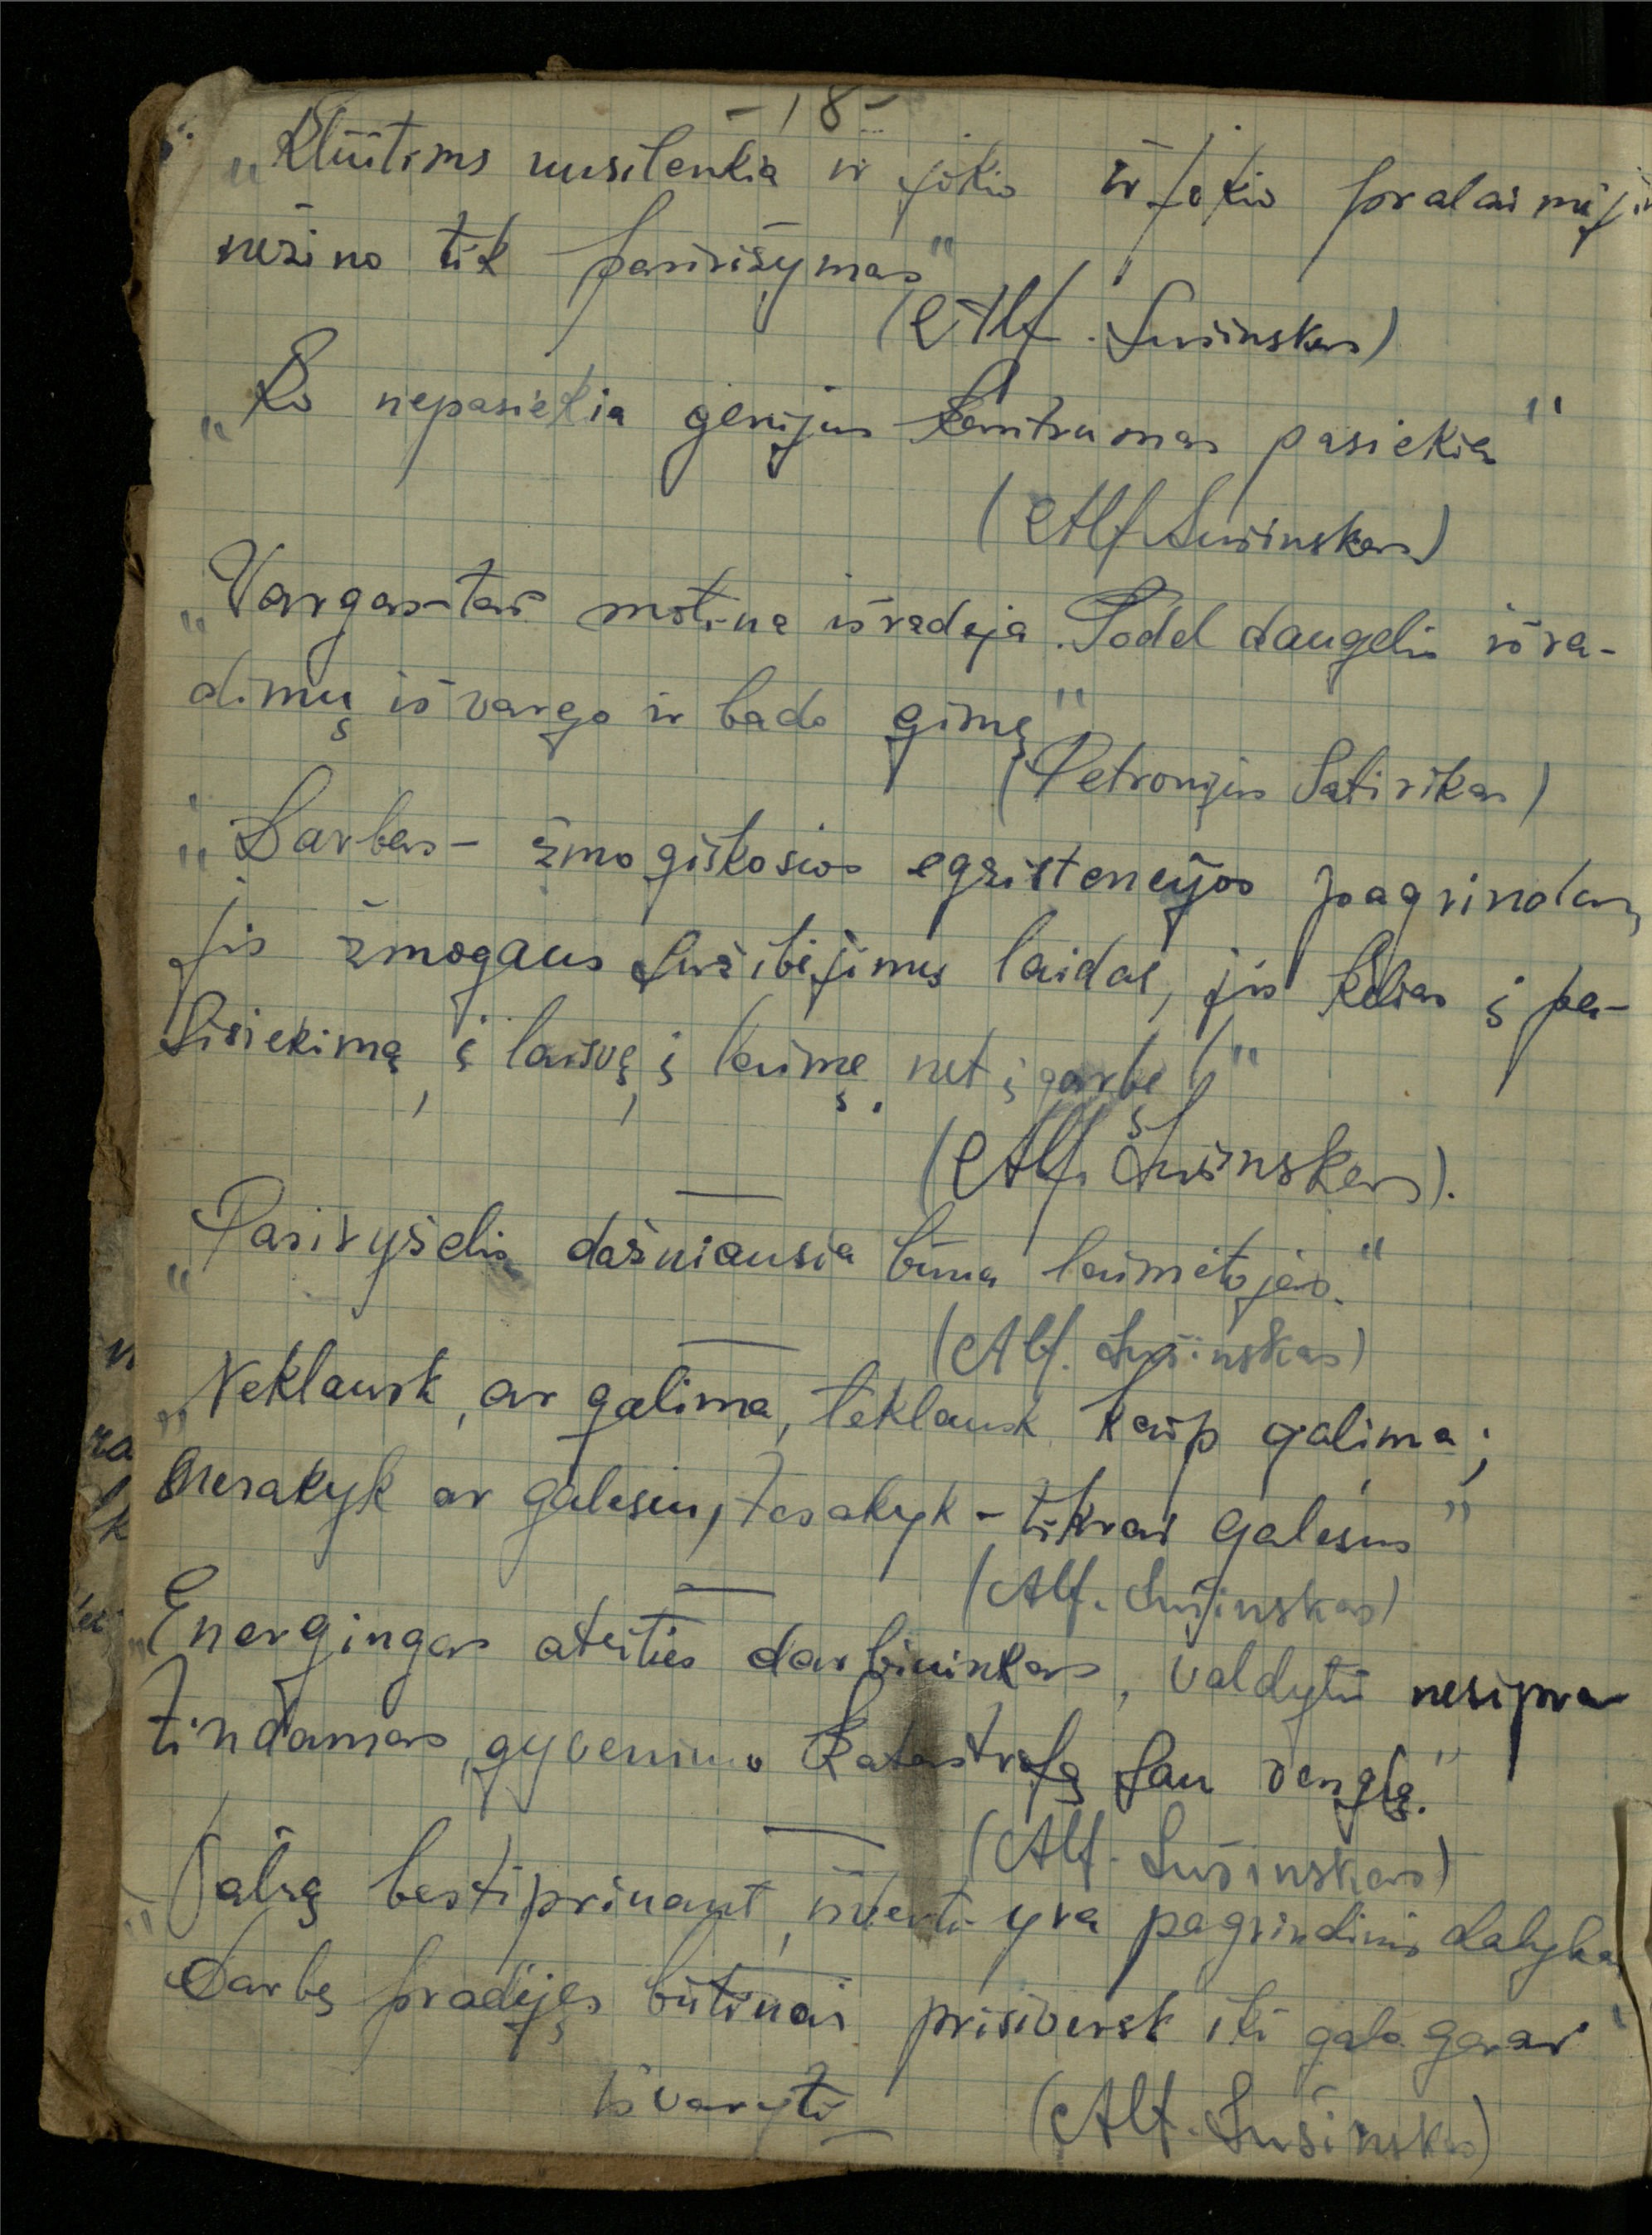 -18-
„Kliūtims nusilenkia ir jokio ir jokio pralaimėji
nežino tik pasirišymas"
(Alf. Sušinskas)
„Ko nepasiekia genijus kantrumas pasiekia"
(Alf. Sušinskas)
„Vargas-tai motina išradėja. Todel daugelis išra-
dimų iš vargo ir bado gimę"
(Petronijus Satirikas)
„Darbas- žmogiškosios egzistencijos pagrindas,
jis žmogaus sužibėjimus laidas, jis kelias į pa-
sisiekimą, į laisvę, į laimę, net į garbę!"
(Alf. Šušinskas).
„Pasiryšelis dažniausia būna laimėtojas."
(Alf. Sušinskas)
„Neklausk, ar galima, teklausk kaip galima;
nesakyk ar galesiu, tesakyk - tikrai galesiu"
(Alf. Sušinskas)
„Energingas ateities darbininkas, valdytis nesipra
tindamas, gyvenimo katastrofą sau rengia."
(Alf. Sušinskas)
„Valią bestiprinant, ištverti yra pagrindinis dalykas
darbą pradėjęs būtinai prisiversk iki galo gerai
išvaryti
(Alf. Sušinskas)